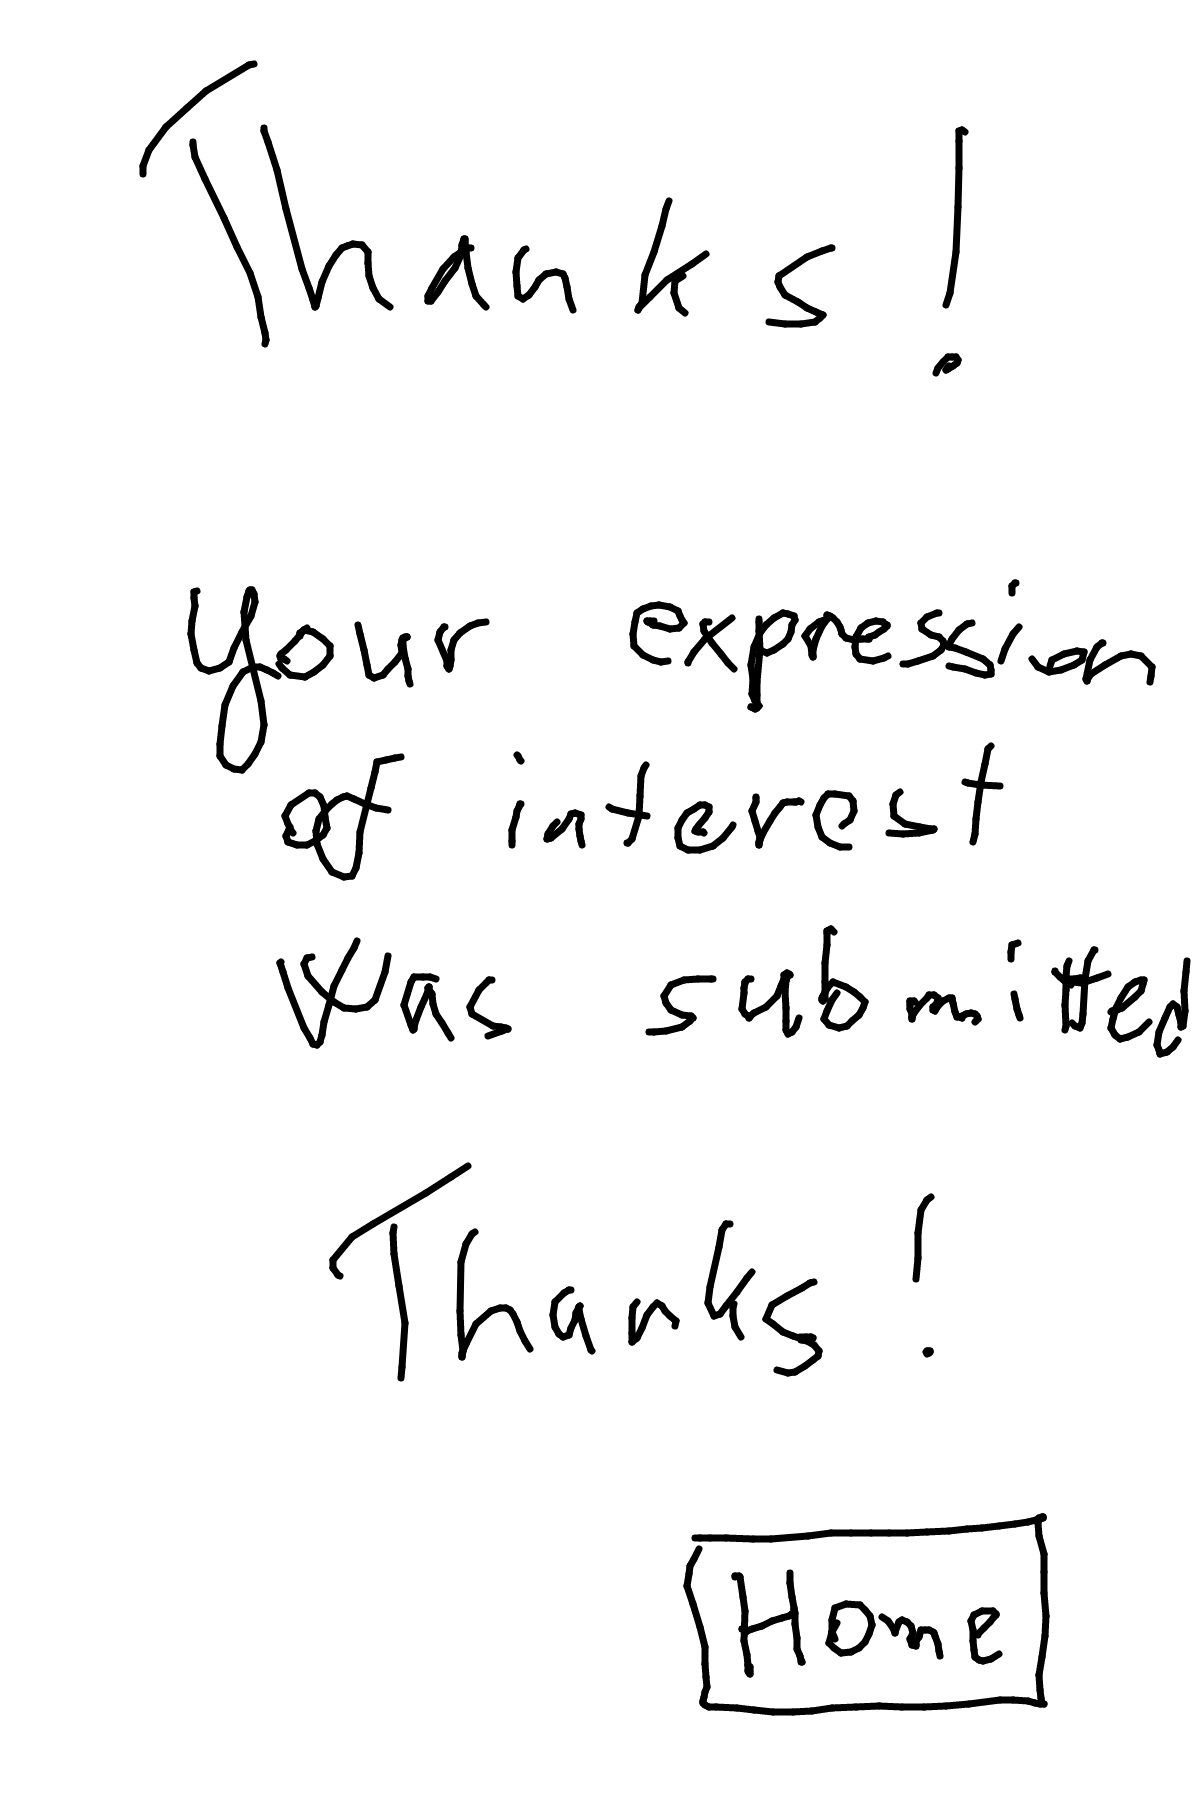 Thanks!
Your expression
of interest
was submitted
Thanks!
Home